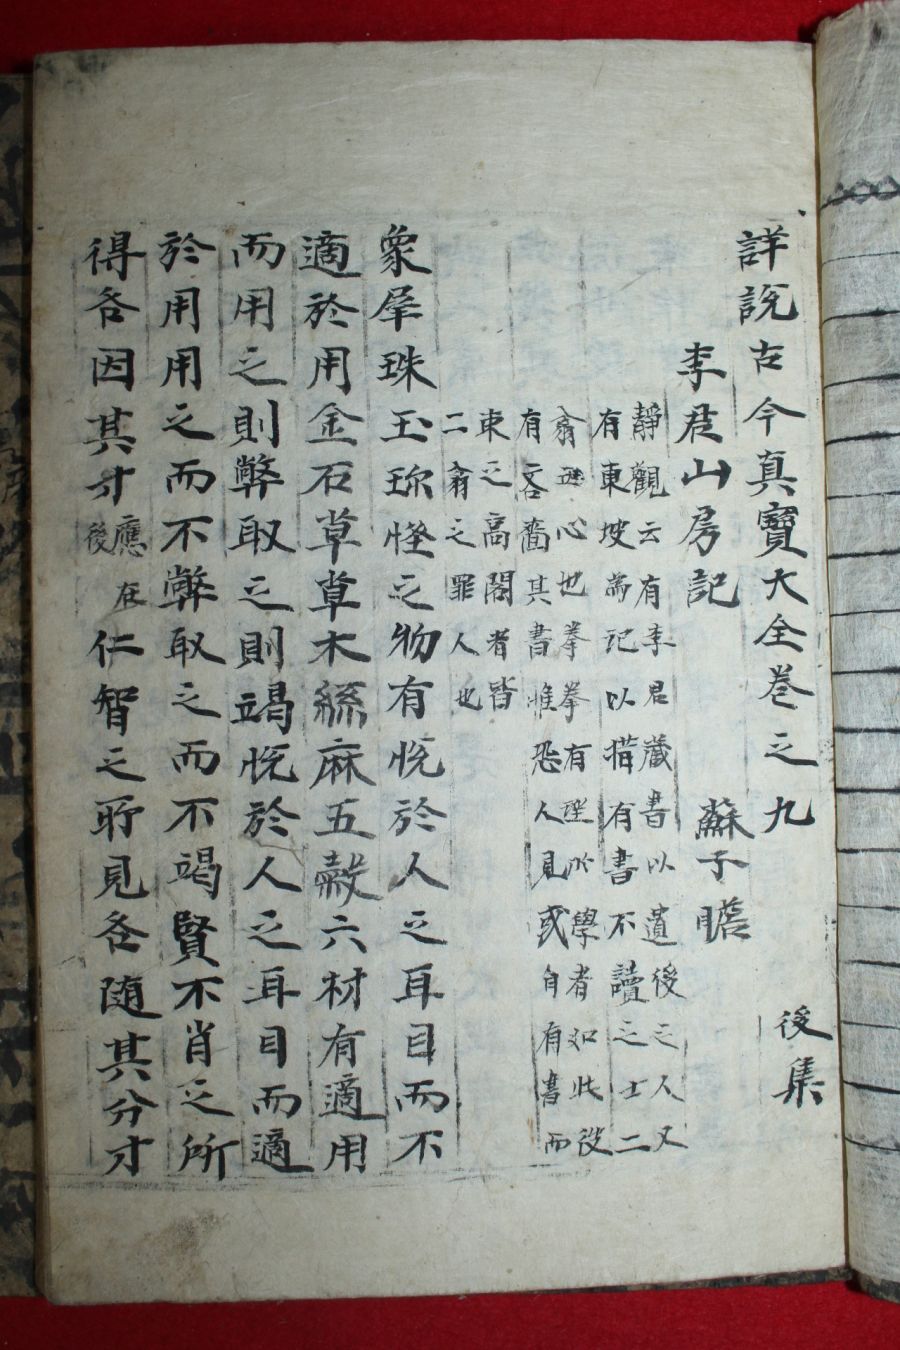 詳說古今真寶大全卷之九 後集
李君山房記 蘇子瞻
靜觀云有李君藏書以遺後之人又
有東坡為記以描有書不讀之士二
翁無心也拳拳有望於學者如此役
有吝嗇其書惟恐人見或自有書而
束之高閣者皆
二翁之罪人也
象犀珠玉珎怪之物有悅於人之耳目而不
適於用金石草草木絲麻五穀六材有適用
而用之則弊取之則竭悅於人之耳目而適
於用用之而不弊取之而不竭賢不肖之所
得各因其才應在後仁智之所見各随其分才